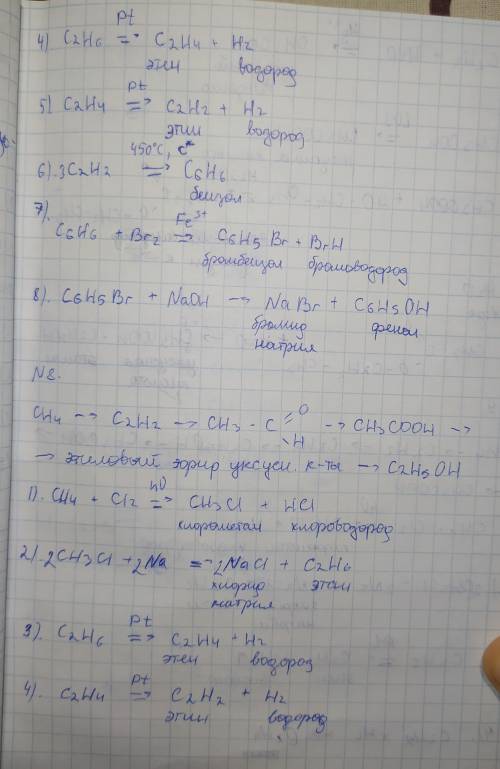 Pt
4) C2H6 => C2H4 + H2
этен водород
Pt
5) C2H4 => C2H2 + H2
этин водород
450°C, C*
6). 3C2H2 => C6H6
бензол
7).
Fe3+
C6H6 + Br2 => C6H5Br + BrH
бромбензол бромоводород
8). C6H5Br + NaOH -> NaBr + C6H5OH
бромид фенол
натрия
N8.
CH4 -> C2H2 -> CH3 - C =O -H -> CH3COOH ->
-> этиловый эфир уксусн. к-ты -> C2H5OH
hυ
1). CH4 + Cl2 => CH3Cl + HCl
хлорметан хлороводород
2). 2CH3Cl + 2Na = 2NaCl + C2H6
хлорид этан
натрия
Pt
3). C2H6 => C2H4 + H2
этен водород
Pt
4). C2H4 => C2H2 + H2
этин водород